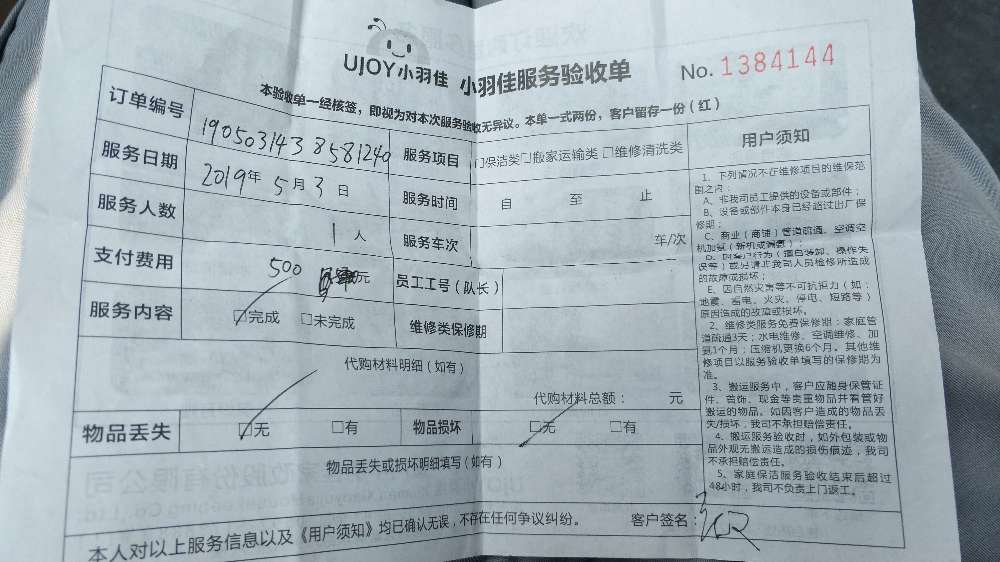 UJOY小羽佳 小羽佳服务验收单
No. 1384144
本验收单一经核签，即视为对本次服务验收无异议。本单一式两份，客户留存一份（红）
订单编号 1905031438581240 服务项目 □保洁类□搬家运输类 □维修清洗类
服务日期 2019年 5月 3日 服务时间 自 至 止
服务人数 1人 服务车次 车/次
支付费用 500 元 员工工号（队长）
服务内容 ☑完成 □未完成 维修类保修期
代购材料明细（如有）
代购材料总额： 元
物品丢失 ☑无 □有 物品损坏 ☑无 □有
物品丢失或损坏明细填写（如有）
本人对以上服务信息以及《用户须知》均已确认无误，不存在任何争议纠纷。 客户签名：
用户须知
1、下列情况不在维修项目的维保范
围之内：
A、非我司员工提供的设备或部件；
B、设备或部件本身已经超过出厂保
修期；
C、商业（商铺）管道疏通、空调空
机加氨（新机或漏氨）；
D、因客户行为（擅自装卸、操作失
误等）或另请非我司人员检修所造成
的故障或损坏；
E、因自然灾害等不可抗拒力（如：
地震、蓄电、火灾、停电、短路等）
原因造成的故障或损坏。
2、维修类服务免费保修期：家庭管
道疏通3天；水电维修、空调维修、加
氨1个月；压缩机更换6个月。其他维
修项目以服务验收单填写的保修期为
准。
3、搬运服务中，客户应随身保管证
件、首饰、现金等贵重物品并看管好
搬运的物品。如因客户造成的物品丢
失/损坏，我司不承担赔偿责任。
4、搬运服务验收时，如外包装或物
品外观无搬运造成的损伤痕迹，我司
不承担赔偿责任。
5、家庭保洁服务验收结束后超过
48小时，我司不负责上门返工。